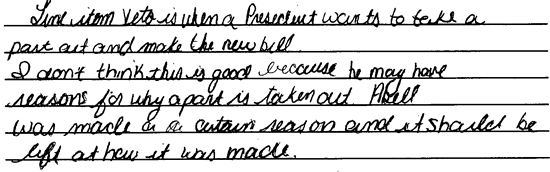 Line item veto is when a President wants to take a
part out and make the new bill.
I don't think this is good because he may have
reasons for why a part is taken out A bill
was made a certain reason and it should be
left at how it was made.